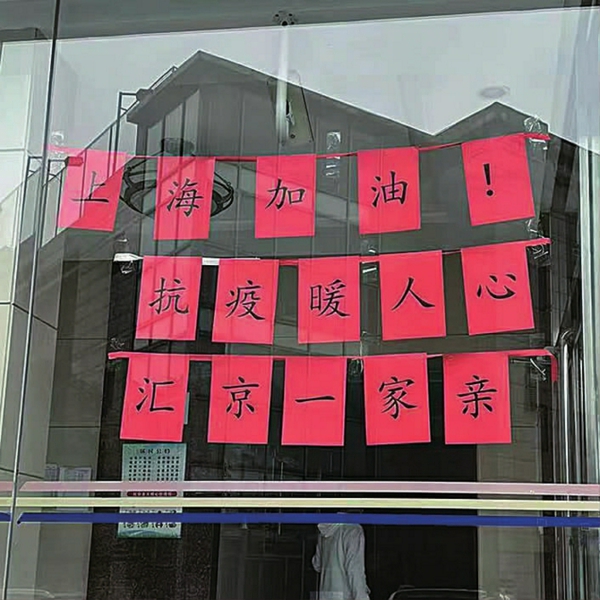 上海加油！
抗疫暖人心
汇京一家亲